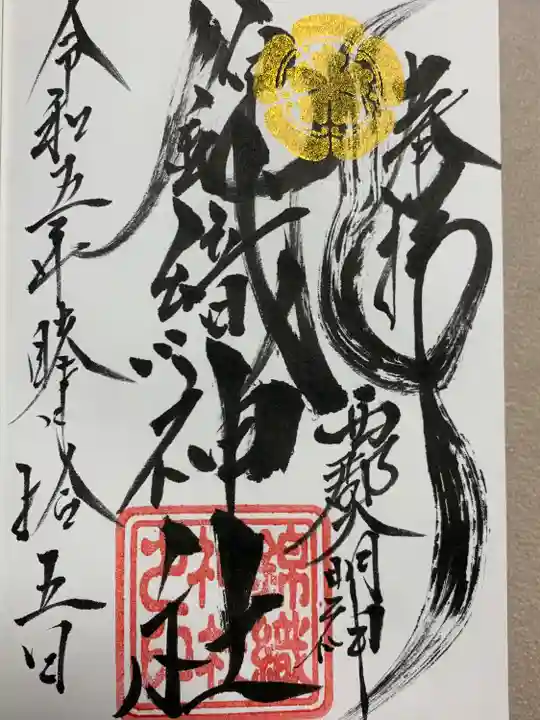 奉拝
郡天明神
錦織神社
錦織神社之印
令和五年睦月拾五日